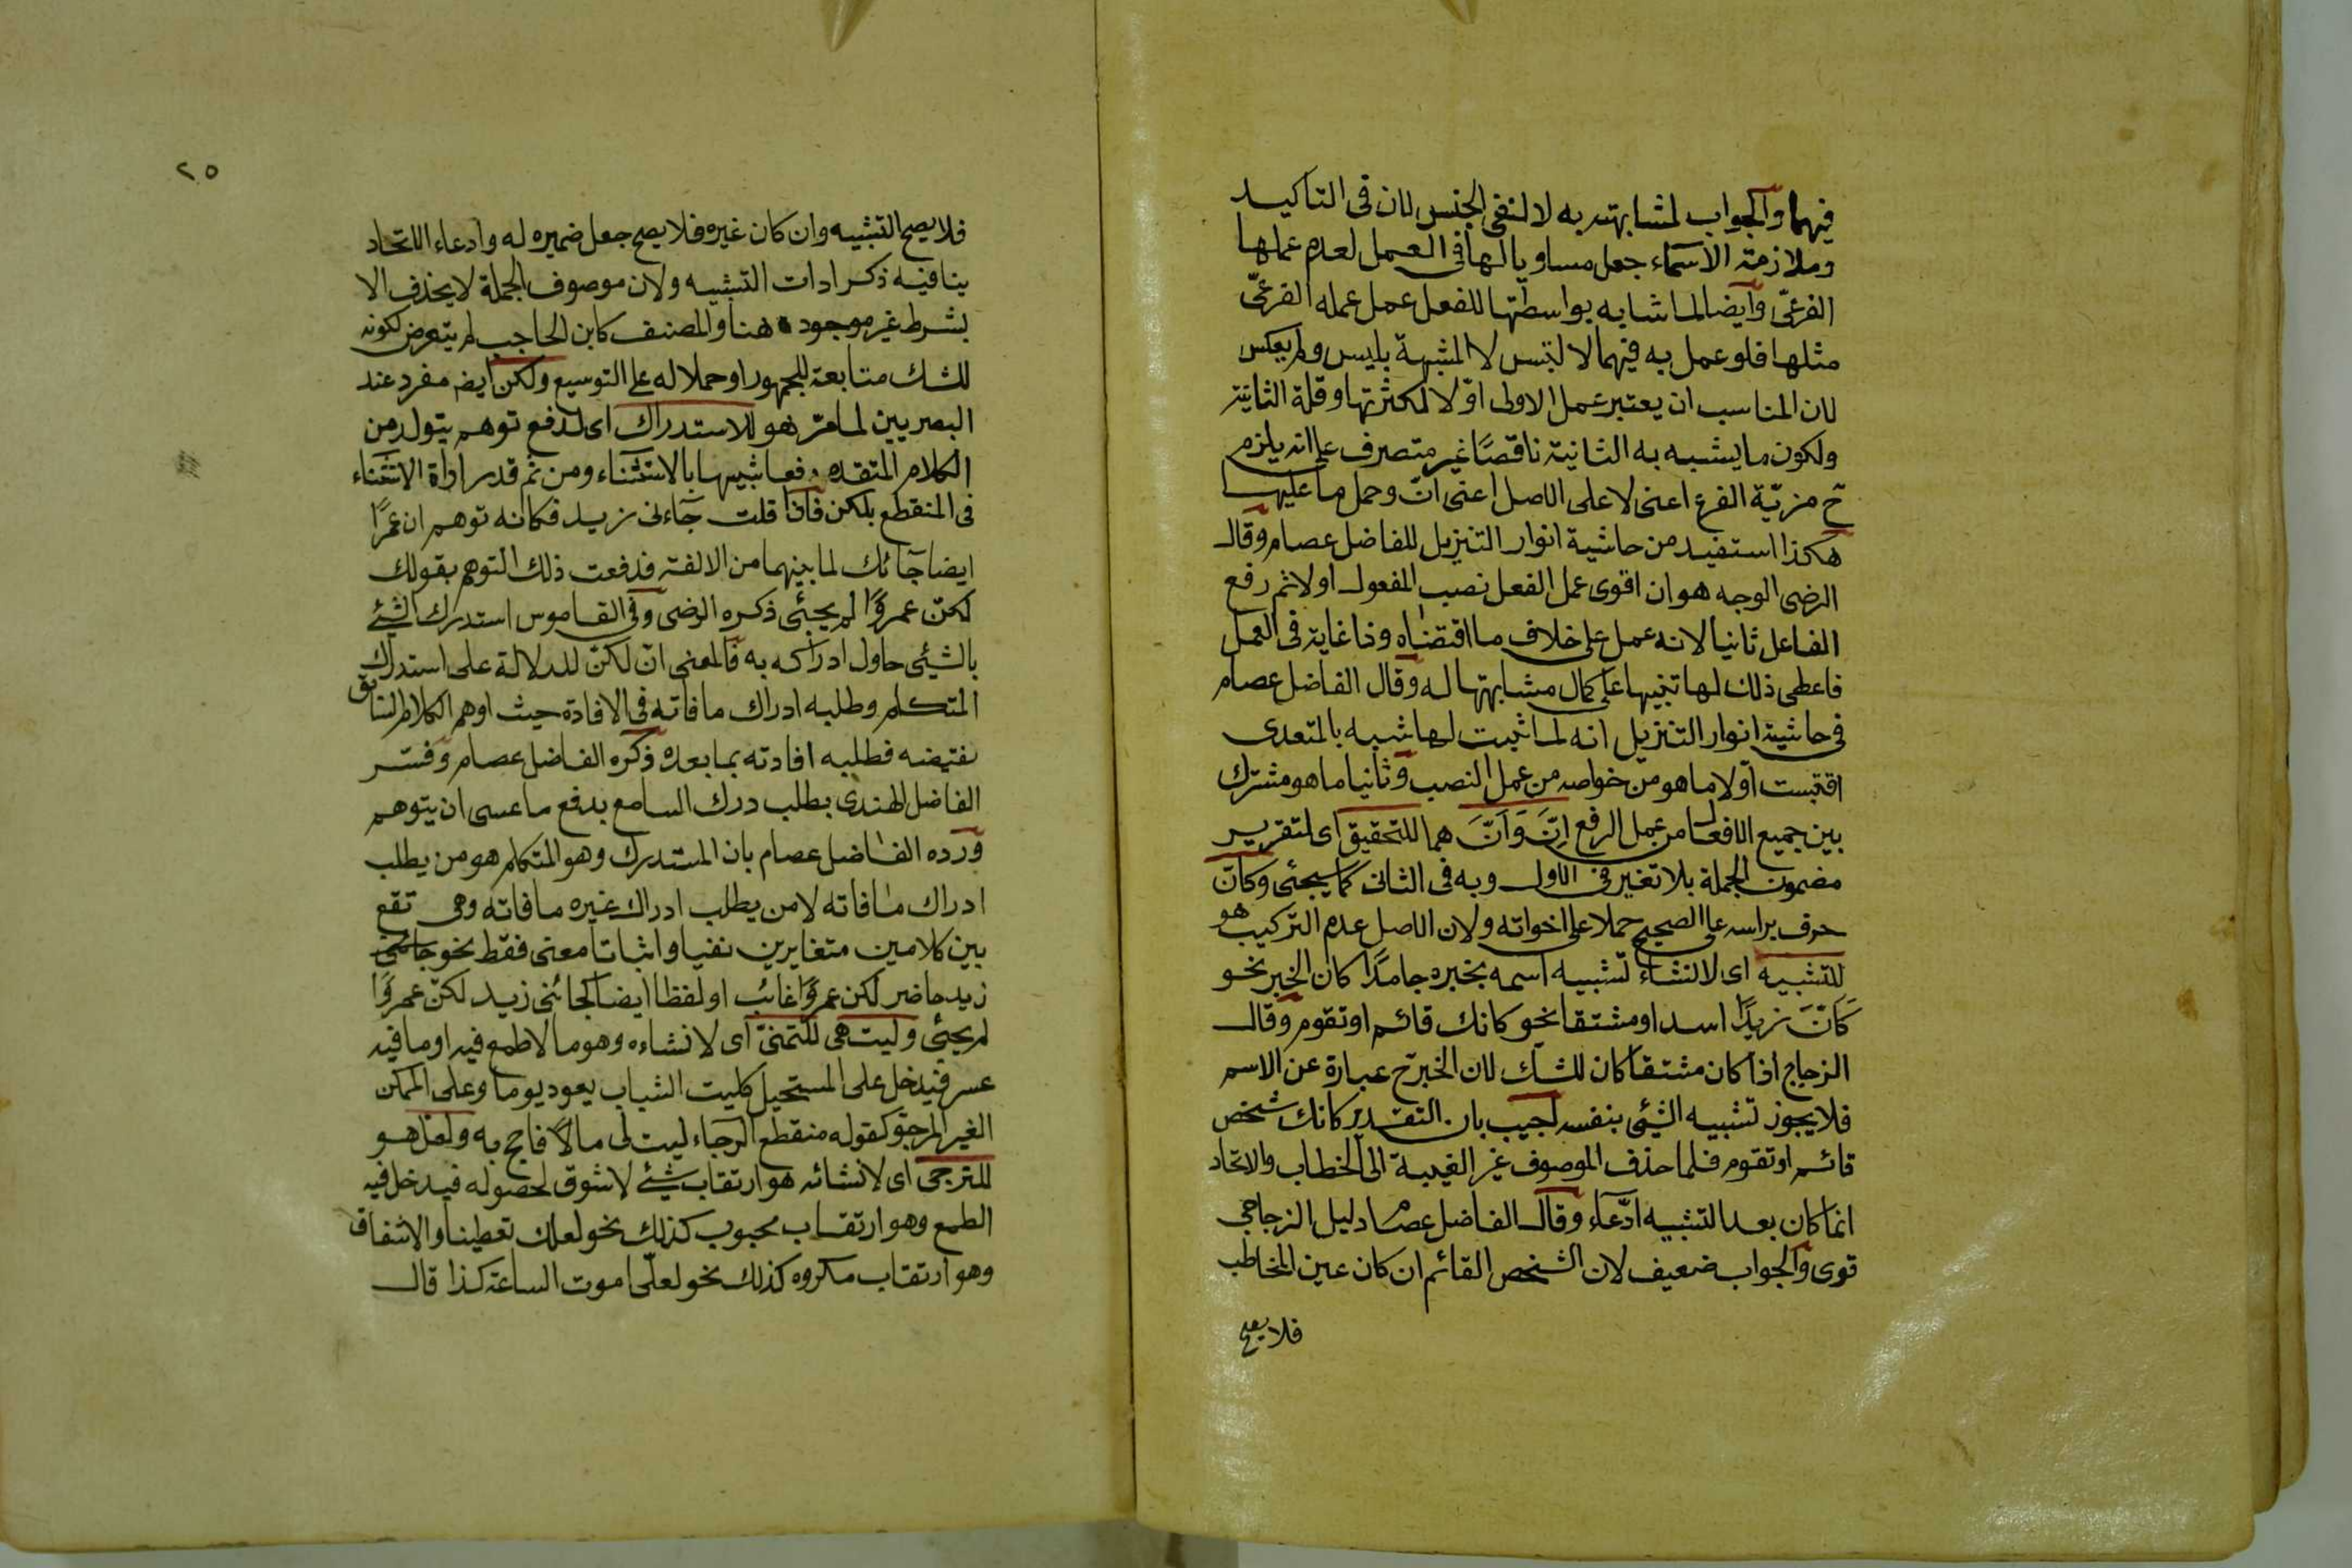 فيهما والجواب لمشابهته به لا لنفى الجنس لان فى التاكيد
وملازمته الاسماء جعل مساويا لها فى العمل لعدم عملها
الفرعىّ وايضا لما شابه بواسطتها للفعل عمل عمله الفرعىّ
مثلها فلو عمل به فيهما لالتبس لا المشبهة بليس ولم يعكس
لان المناسب ان يعتبر عمل الاولى اوّلا لكثرتها وقلة الثانية
ولكون ما يشبه به الثانية ناقصًا غير متصرف على انه يلزم
ح مزيّة الفرع اعنى لا على الاصل اعنى انّ وحمل ما عليها
هكذا استفيد من حاشية انوار التنزيل للفاضل عصام وقال
الرضى الوجه هو ان اقوى عمل الفعل نصب المفعول اولا ثم رفع
الفاعل ثانيا لانه عمل على خلاف ما اقتضاه وذا غاية فى العمل
فاعطى ذلك لها تنبيها على كمال مشابهتها له وقال الفاضل عصام
فى حاشية انوار التنزيل انه لما اثبت لها شبه بالمتعدى
اقتبست اوّلا ما هو من خواصه من عمل النصب وثانيا ما هو مشترك
بين جميع الافعال من عمل الرفع اِنَّ وَاَنَّ هما للتحقيق اى لتقرير
مضمون الجملة بلا تغير فى الاول وبه فى الثانى كما سيجئى وكانّ
حرف براسه على الصحيح حملا على اخواته ولان الاصل عدم التركيب هو
للتشبيه اى لانشاء تشبيه اسمه بخبره جامدًا كان الخبر نحو
كَاَنّ زيدًا اسد او مشتقا نحو كانك قائم او تقوم وقال
الزجاج اذا كان مشتقا كان للشك لان الخبر ح عبارة عن الاسم
فلا يجوز تشبيه الشئى بنفسه اجيب بان التقدير كانك شخص
قائم او تقوم فلما حذف الموصوف غير الغيبة الى الخطاب والاتحاد
انما كان بعد التشبيه ادّعاء وقال الفاضل عصام دليل الزجاجى
قوى والجواب ضعيف لان الشخص القائم ان كان عين المخاطب
فلا يصح
٢٥
فلا يصح التشبيه وان كان غيره فلا يصح جعل ضميره له وادعاء الاتحاد
ينافيه ذكر ادات التشبيه ولان موصوف الجملة لا يحذف الا
بشرط غير موجود هنا والمصنف كابن الحاجب لم يتعرض لكونه
للشك متابعة للجمهور او حملا له على التوسيع ولكن ايضه مفرد عند
البصريين لما مرّ هو للاستدراك اى لدفع توهم يتولد من
الكلام المتقدم دفعا شبيها بالاستثناء ومن ثم قدر اداة الاستثناء
فى المنقطع بلكن فاذا قلت جاءنى زيد فكانه توهم ان عمرًا
ايضا جائك لما بينهما من الالفة فدفعت ذلك التوهم بقولك
لكنّ عمروًا لم يجئى ذكره الرضى وفى القاموس استدرك الشئے
بالشئى حاول ادراكه به فالمعنى انّ لكنّ للدلالة على استدراك
المتكلم وطلبه ادراك ما فاته فى الافادة حيث اوهم الكلام السابق
نقيضه فطلبه افادته بما بعده ذكره الفاضل عصام وفسّر
الفاضل الهندى بطلب درك السامع بدفع ما عسى ان يتوهم
ورده الفاضل عصام بان المستدرك وهو المتكلم هو من يطلب
ادراك ما فاته لا من يطلب ادراك غيره ما فاته وهى تقع
بين كلامين متغايرين نفيا واثباتا معنى فقط نحو
زيد حاضر لكن عمروًا غائب او لفظا ايضا كجائنى زيد لكنّ عمروًا
لم يجئى وليت هى للتمنىّ اى لانشاءه وهو ما لا طمع فيه او ما فيه
عسر فيدخل على المستحيل كليت الشباب يعود يوما وعلى الممكن
الغير المرجوّ كقوله منقطع الرجاء ليت لى مالًا فاحج به ولعلّ هو
للترجى اى لانشائه هو ارتقاب شئے لا شوق لحصوله فيدخل فيه
الطمع وهو ارتقاب محبوب كذلك نحو لعلك تعطينا والاشفاق
وهو ارتقاب مكروه كذلك نحو لعلّى اموت الساعة كذا قال